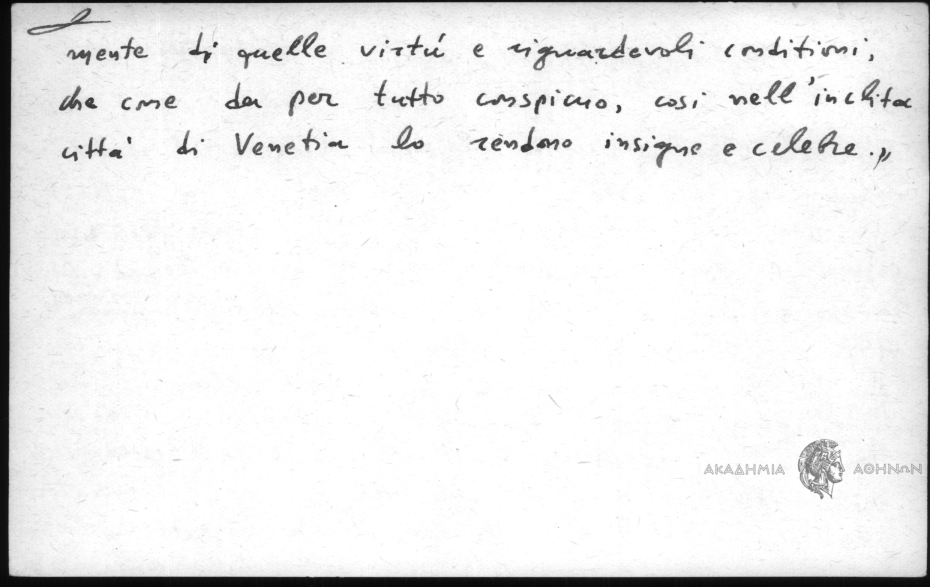 mente di quelle virtú e riguardevoli conditioni,
che come da per tutto conspicuo, cosi nell'inclita
città di Venetia lo rendono insigne e celebre.„
ΑΚΑΔΗΜΙΑ ΑΘΗΝΩΝ